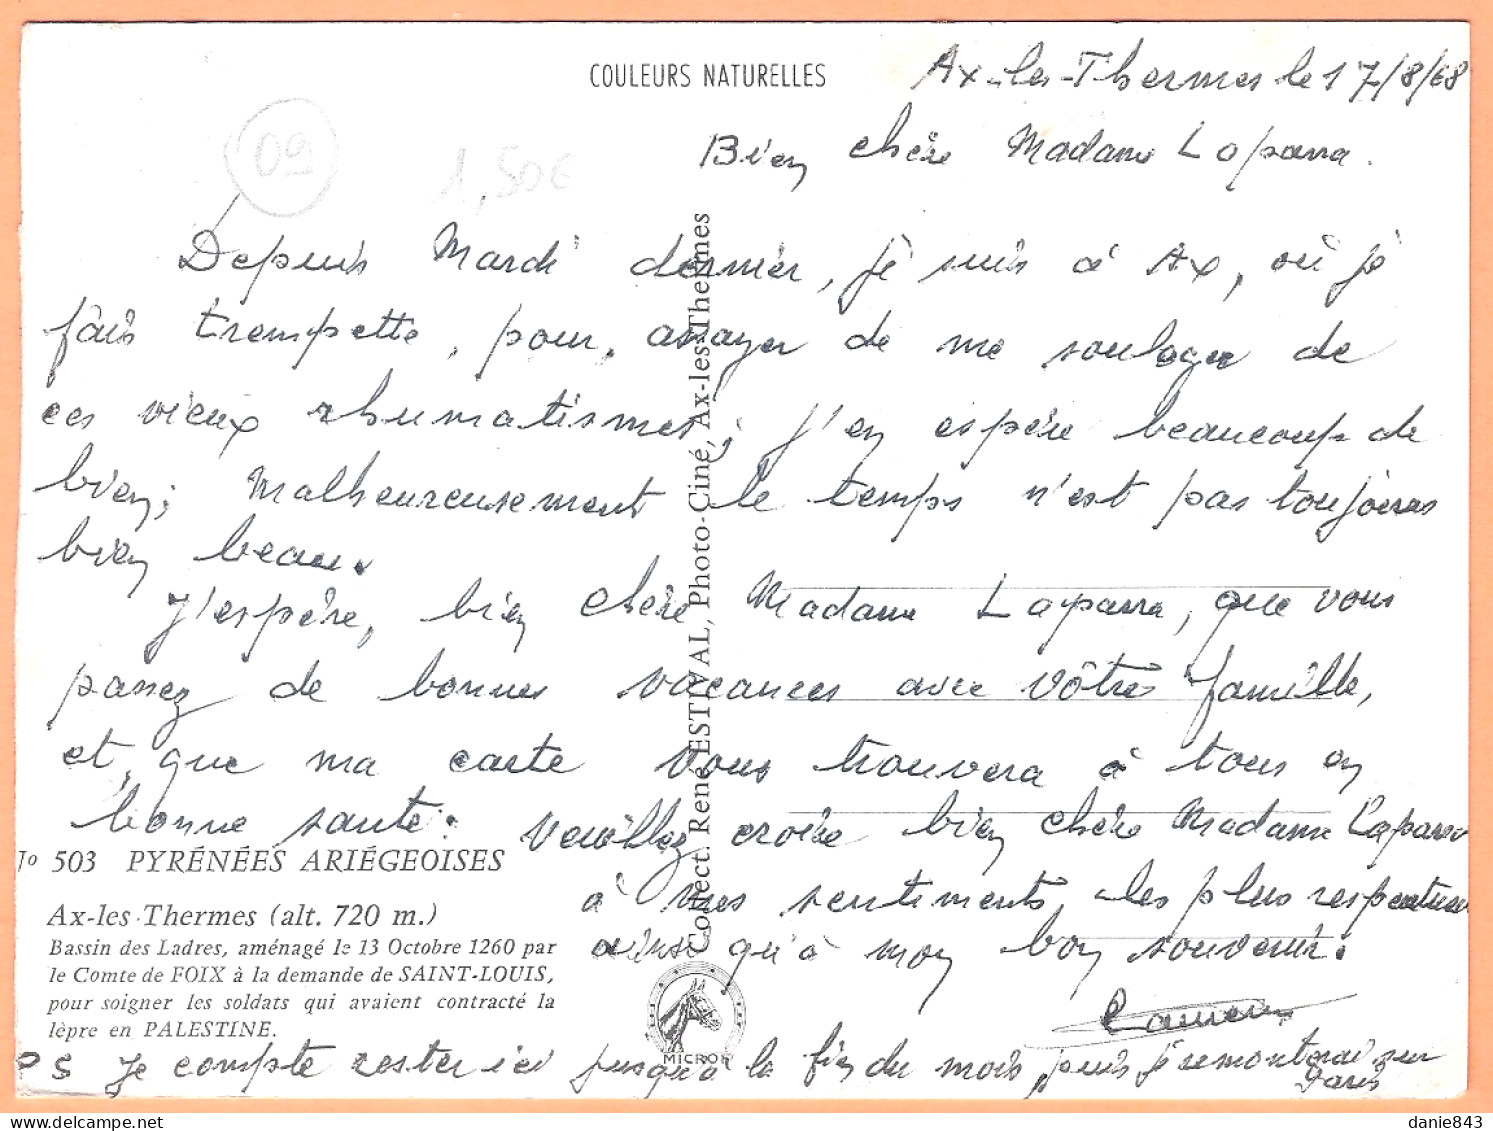 COULEURS NATURELLES
Ax-les-Thermes le 17/8/68
09
1,50€
Bien chère Madame Laparra.
Depuis Mardi dernier, je suis à Ax, où je
fais trempette, pour, essayer de me soulager de
ces vieux rhumatismes, j'en espère beaucoup de
bien; Malheureusement le temps n'est pas toujours
bien beau.
J'espère, bien chère Madame Laparra, que vous
passez de bonnes vacances avec vôtre famille,
et, que ma carte vous trouvera à tous en
bonne santé. Veuillez croire bien chère Madame Laparra
à mes sentiments, les plus respectueux
ainsi qu'à mon bon souvenir.
Collect. René ESTIVAL, Photo-Ciné, Ax-les-Thermes
503 PYRÉNÉES ARIÉGEOISES
Ax-les-Thermes (alt. 720 m.)
Bassin des Ladres, aménagé le 13 Octobre 1260 par
le Comte de FOIX à la demande de SAINT-LOUIS,
pour soigner les soldats qui avaient contracté la
lèpre en PALESTINE.
MICRO
PS Je compte rester ici jusqu'à la fin du mois, puis je remonterai sur
Paris
danie843